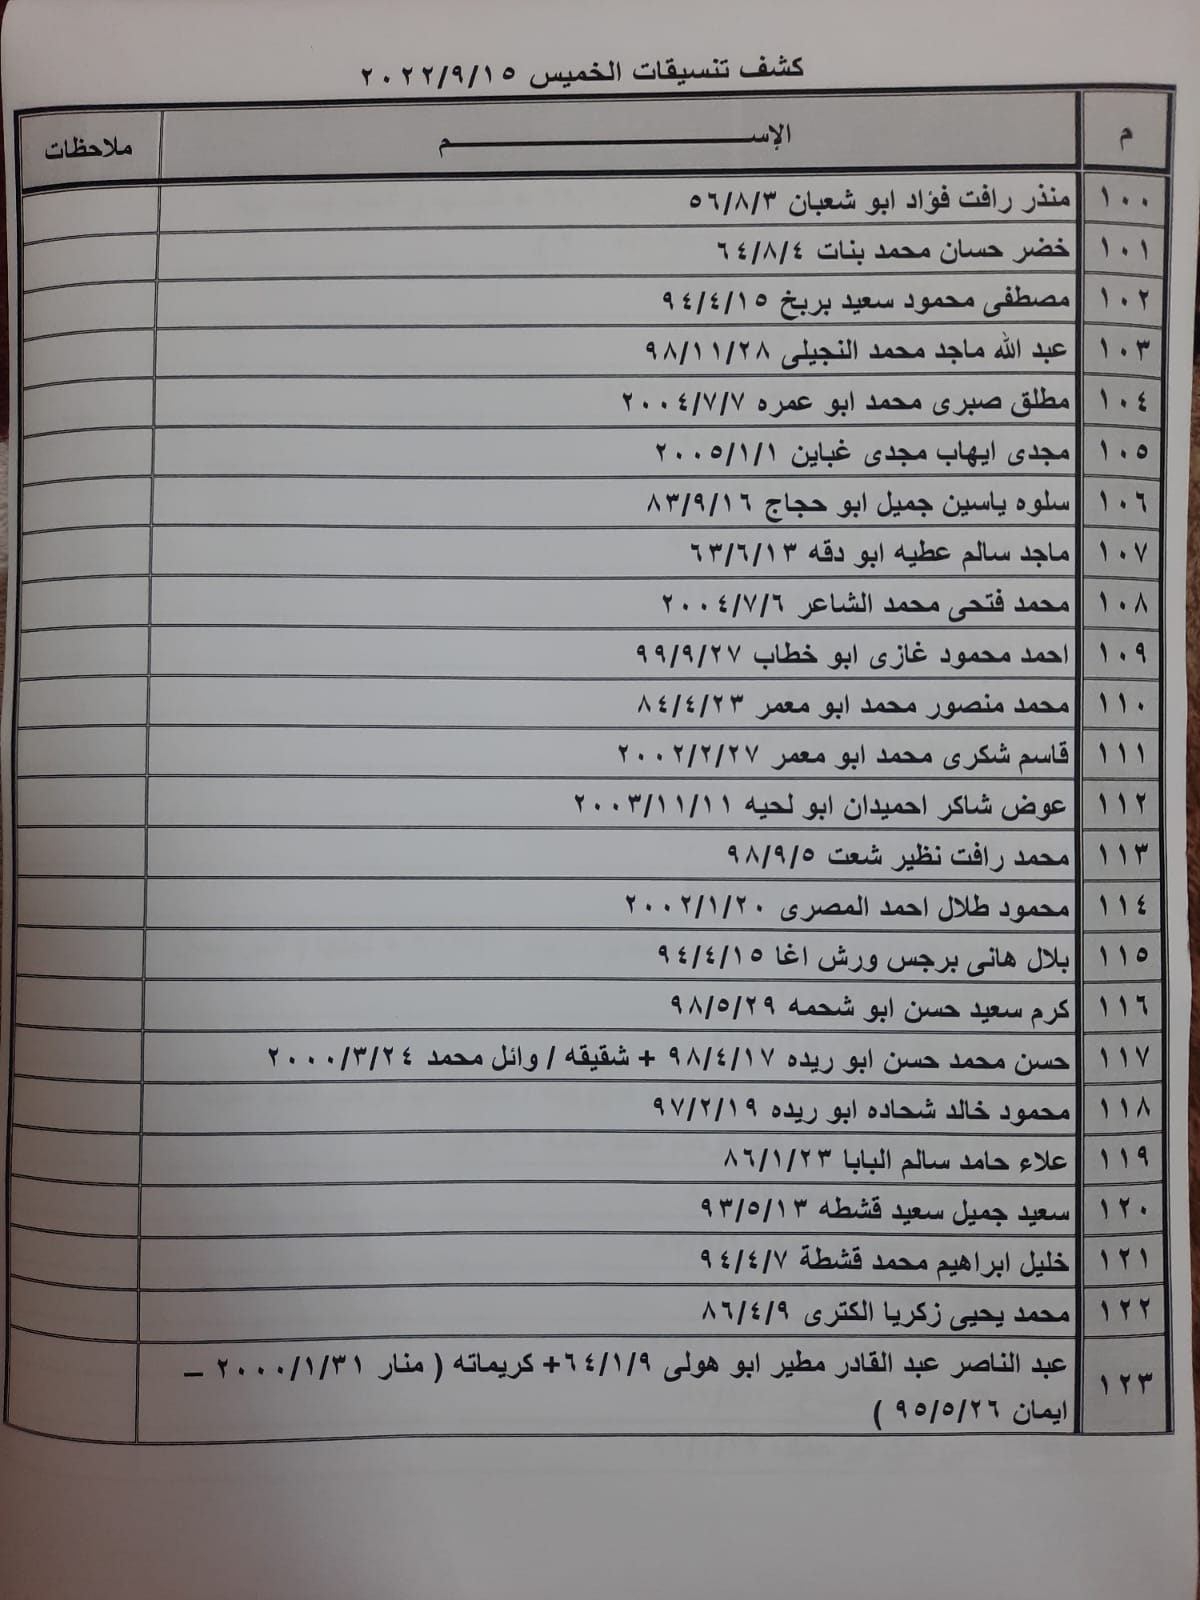 كشف تنسيقات الخميس ٢٠٢٢/٩/١٥
م الإســـــم ملاحظات
١٠٠ منذر رافت فؤاد ابو شعبان ٥٦/٨/٣
١٠١ خضر حسان محمد بنات ٦٤/٨/٤
١٠٢ مصطفى محمود سعيد بربخ ٩٤/٤/١٥
١٠٣ عبد الله ماجد محمد النجيلى ٩٨/١١/٢٨
١٠٤ مطلق صبرى محمد ابو عمره ٢٠٠٤/٧/٧
١٠٥ مجدى ايهاب مجدى غباين ٢٠٠٥/١/١
١٠٦ سلوه ياسين جميل ابو حجاج ٨٣/٩/١٦
١٠٧ ماجد سالم عطيه ابو دقه ٦٣/٦/١٣
١٠٨ محمد فتحى محمد الشاعر ٢٠٠٤/٧/٦
١٠٩ احمد محمود غازى ابو خطاب ٩٩/٩/٢٧
١١٠ محمد منصور محمد ابو معمر ٨٤/٤/٢٣
١١١ قاسم شكرى محمد ابو معمر ٢٠٠٢/٢/٢٧
١١٢ عوض شاكر احميدان ابو لحيه ٢٠٠٣/١١/١١
١١٣ محمد رافت نظير شعت ٩٨/٩/٥
١١٤ محمود طلال احمد المصرى ٢٠٠٢/١/٢٠
١١٥ بلال هانى برجس ورش اغا ٩٤/٤/١٥
١١٦ كرم سعيد حسن ابو شحمه ٩٨/٥/٢٩
١١٧ حسن محمد حسن ابو ريده ٩٨/٤/١٧ + شقيقه / وائل محمد ٢٠٠٠/٣/٢٤
١١٨ محمود خالد شحاده ابو ريده ٩٧/٢/١٩
١١٩ علاء حامد سالم البابا ٨٦/١/٢٣
١٢٠ سعيد جميل سعيد قشطه ٩٣/٥/١٣
١٢١ خليل ابراهيم محمد قشطة ٩٤/٤/٧
١٢٢ محمد يحيى زكريا الكترى ٨٦/٤/٩
١٢٣ عبد الناصر عبد القادر مطير ابو هولى ٦٤/١/٩+ كريماته ( منار ٢٠٠٠/١/٣١ –
ايمان ٩٥/٥/٢٦ )